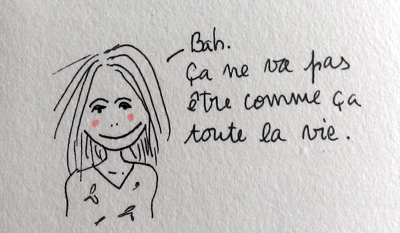 Bah.
Ça ne va pas
être comme ça
toute la vie.